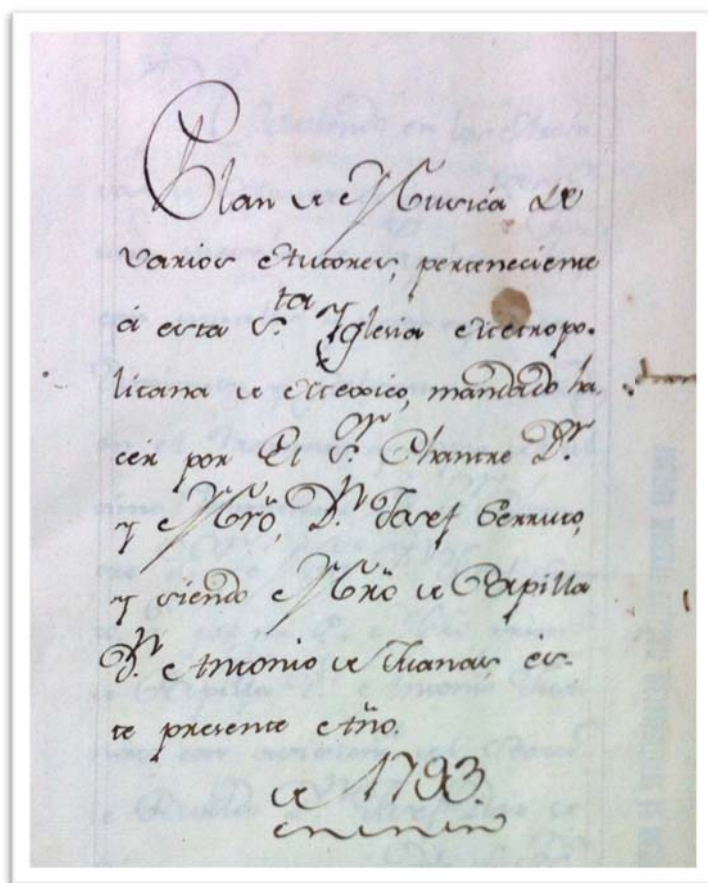 Plan de Musica de
varios Autores, perteneciente
á esta S.ta Yglesia Metropo-
litana de Mexico, mandado ha-
cer por El S.or Chantre D.r
y Mrõ, D.n Josef Serruto,
y siendo Mrõ de Capilla
D.n Antonio de Juanas, es-
te presente Año
de 1793.